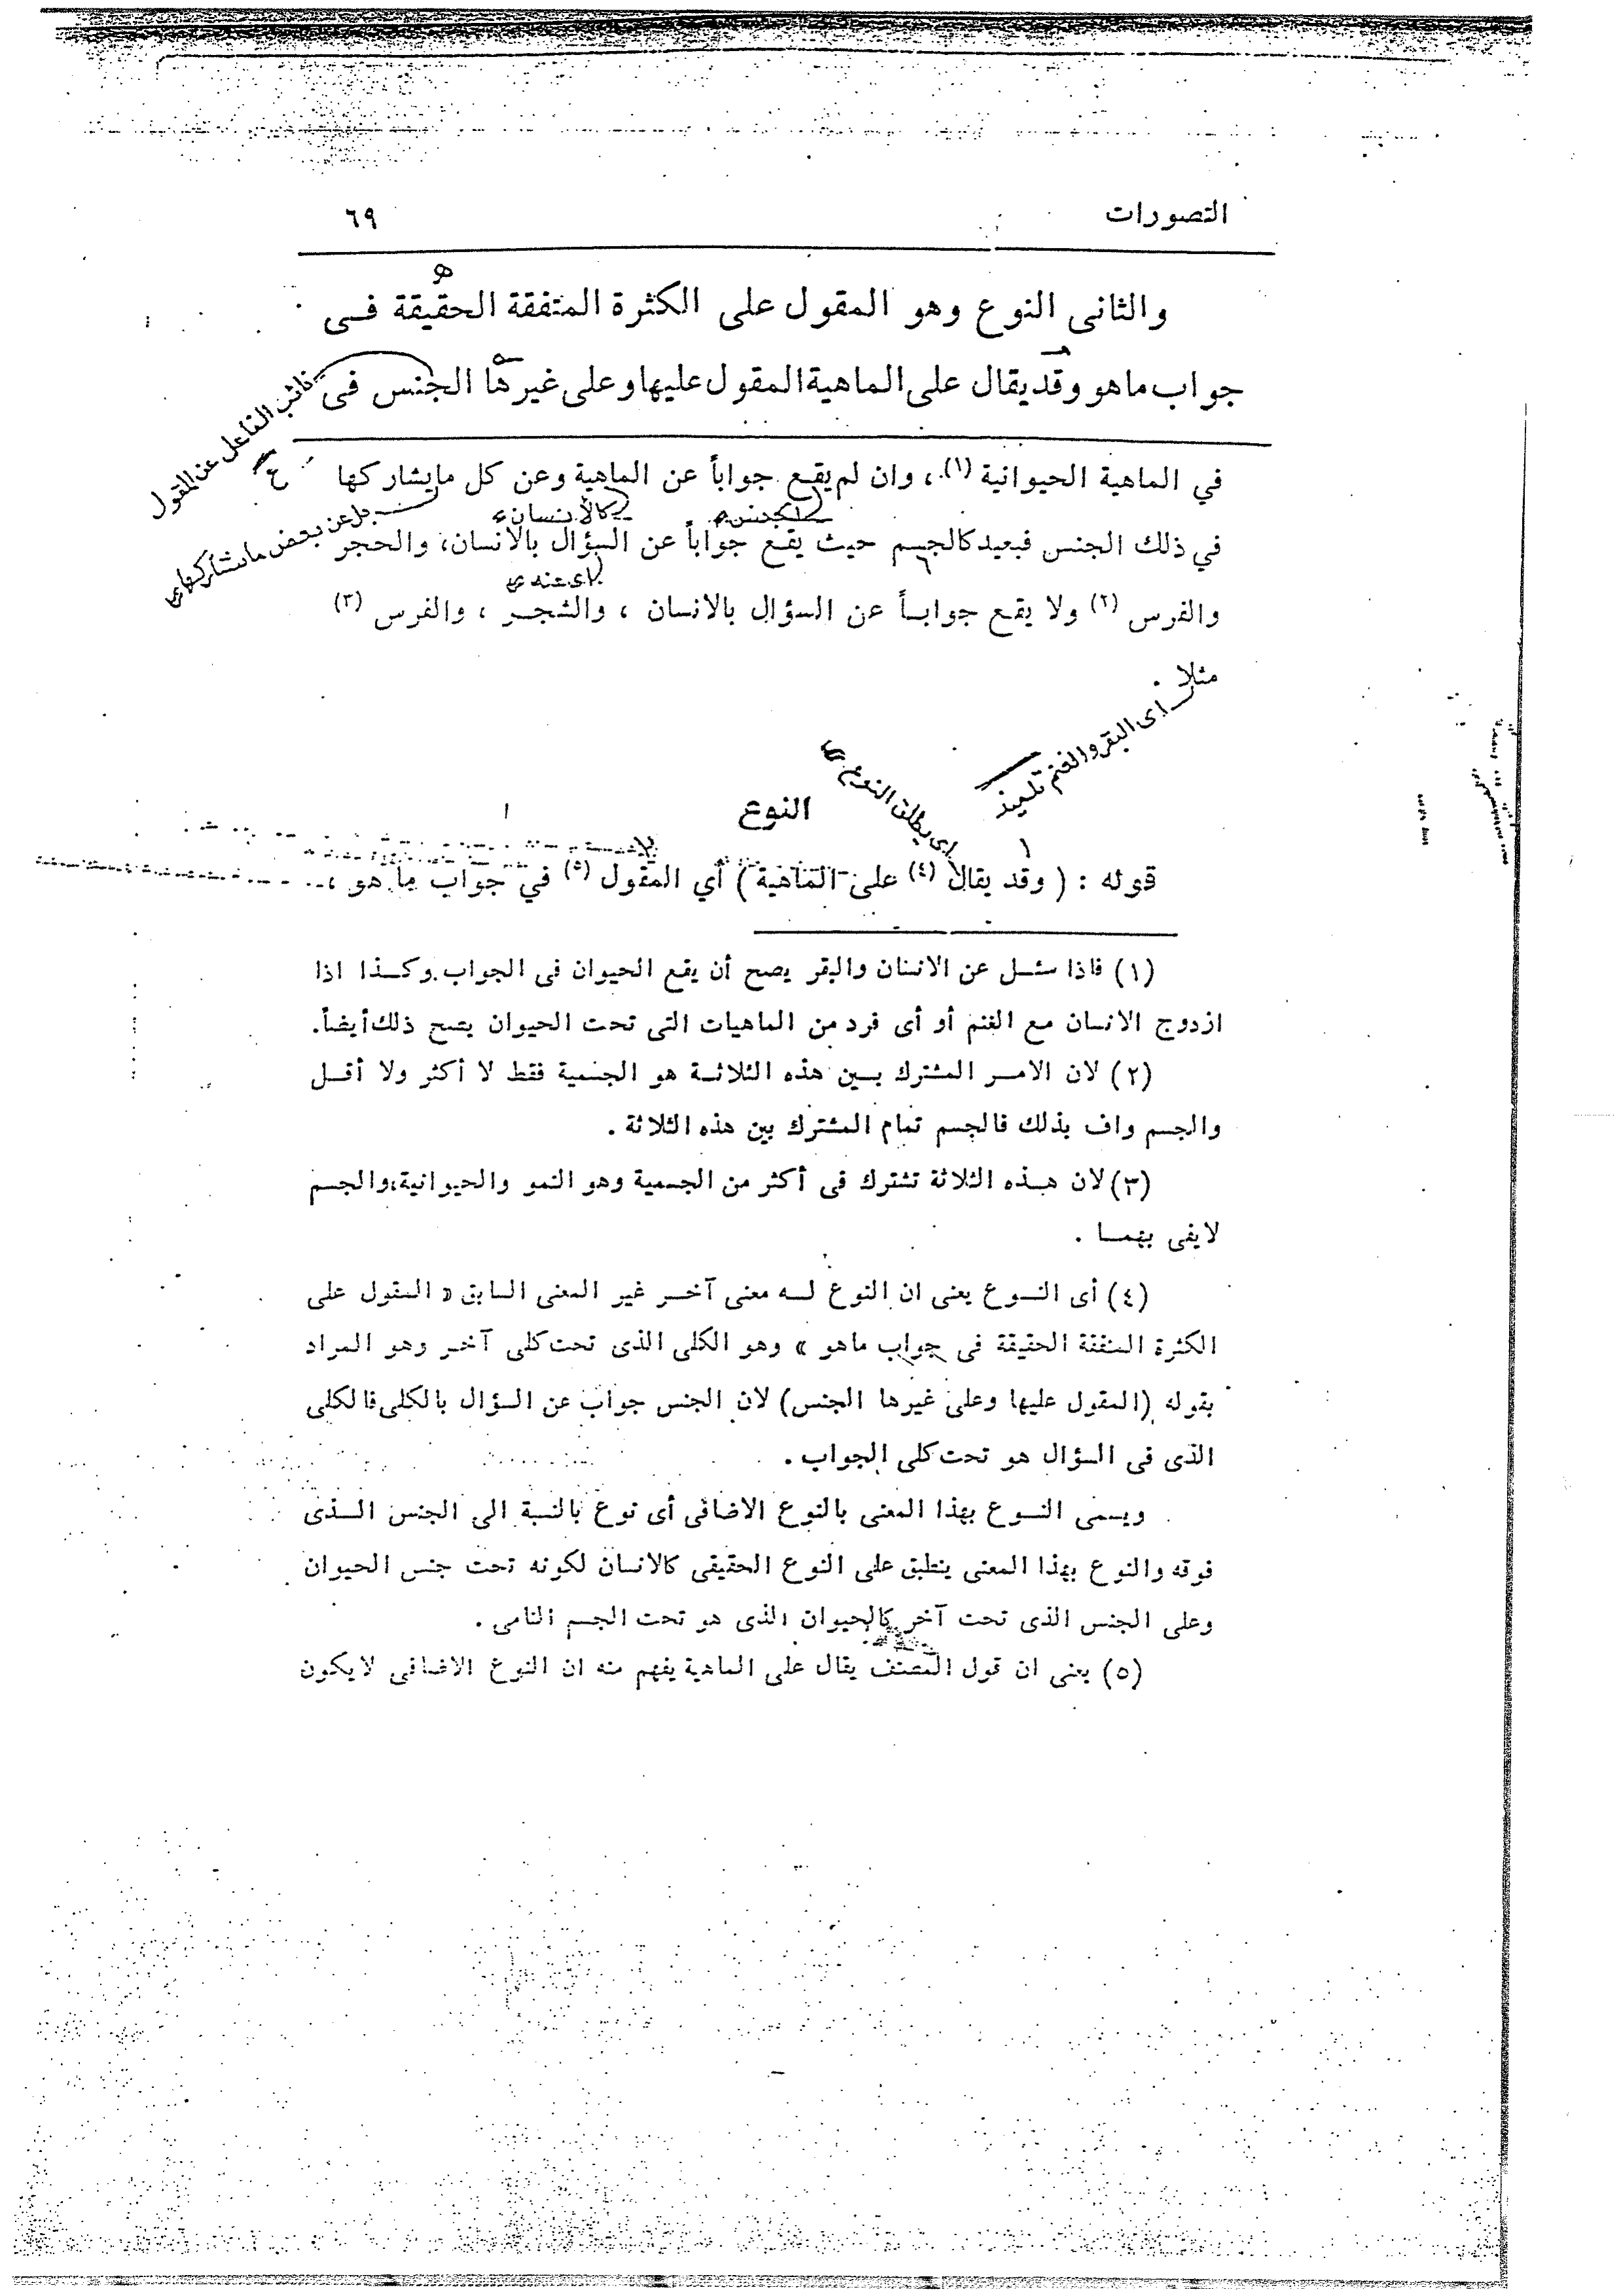 التصورات ٦٩
والثانى النوع وهو المقول على الكثرة المتفقة الحقيقة فـى
جواب ماهو وقديقال على الماهية المقول عليها وعلى غيرها الجنس فى
نائب الفاعل عن المقول
في الماهية الحيوانية (١) ، وان لم يقـع جواباً عن الماهية وعن كل مايشاركها
كالجنس
كالأنسان
بل عن بعض ما يشاركها
في ذلك الجنس فبعيد كالجسم حيث يقـع جواباً عن السؤال بالانسان، والحجر
اى عنه
والفرس (٢) ولا يقـع جوابـاً عن السؤال بالانسان ، والشجـر ، والفرس (٣)
مثلا .
اى البقر والغنم تلميذ
اى يطلق النوع
النوع
قوله : ( وقد يقال (٤) على الماهية ) أي المقول (٥) في جواب ما هو ،
(١) فاذا سئـل عن الانسان والبقر يصح أن يقع الحيوان فى الجواب وكـذا اذا
ازدوج الانسان مع الغنم أو أى فرد من الماهيات التى تحت الحيوان يصح ذلك أيضاً.
(٢) لان الامـر المشترك بـين هذه الثلاثـة هو الجسمية فقط لا أكثر ولا أقـل
والجسم واف بذلك فالجسم تمام المشترك بين هذه الثلاثة .
(٣) لان هـذه الثلاثة تشترك فى أكثر من الجسمية وهو النمو والحيوانية، والجسم
لايفى بهمـا .
(٤) أى النـوع يعنى ان النوع لـه معنى آخـر غير المعنى السابق « المقول على
الكثرة المتفقة الحقيقة فى جواب ماهو » وهو الكلى الذى تحت كلى آخر وهو المراد
بقوله (المقول عليها وعلى غيرها الجنس) لان الجنس جواب عن السؤال بالكلى فالكلى
الذى فى السؤال هو تحت كلى الجواب .
ويسمى النـوع بهذا المعنى بالنوع الاضافى أى نوع بالنسبة الى الجنس الـذى
فوقه والنوع بهذا المعنى ينطبق على النوع الحقيقى كالانسان لكونه تحت جنس الحيوان
وعلى الجنس الذى تحت آخر كالحيوان الذى هو تحت الجسم النامى .
(٥) يعنى ان قول المصنف يقال على الماهية يفهم منه ان النوع الاضافى لايكون